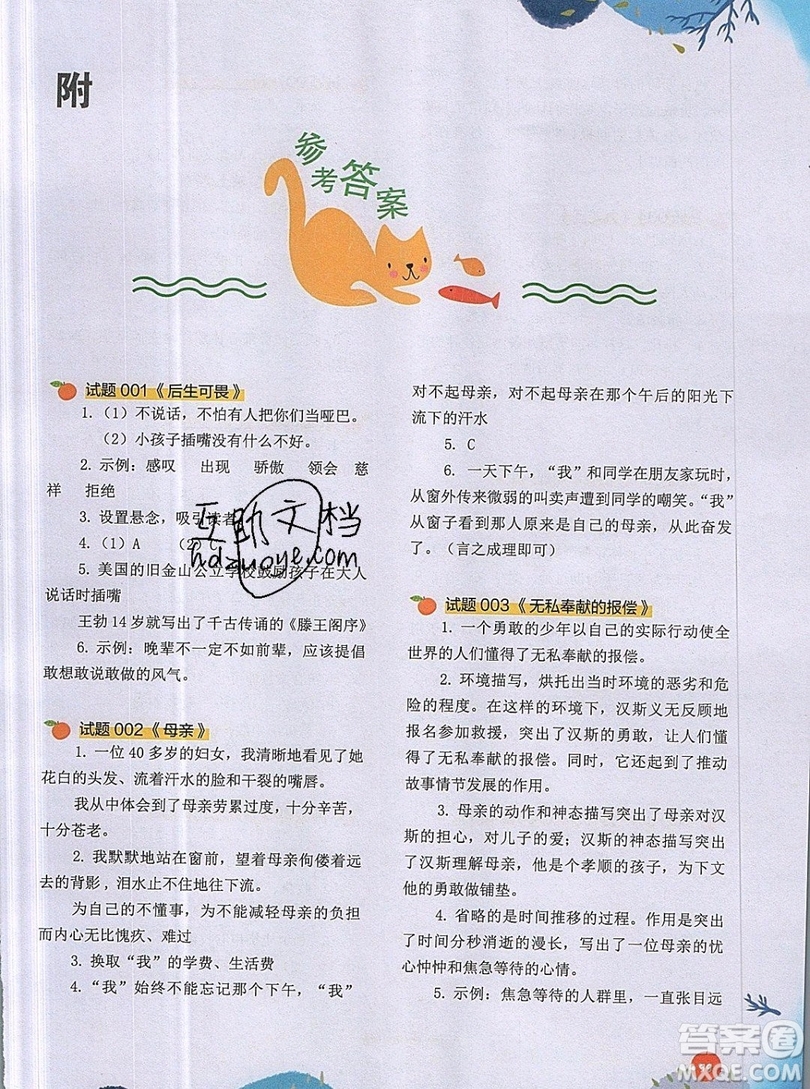 附
参考答案
试题 001《后生可畏》
1.（1）不说话，不怕有人把你们当哑巴。
（2）小孩子插嘴没有什么不好。
2. 示例：感叹 出现 骄傲 领会 慈
祥 拒绝
3. 设置悬念，吸引读者
4.（1）A （2）C
5. 美国的旧金山公立学校鼓励孩子在大人
说话时插嘴
王勃 14 岁就写出了千古传诵的《滕王阁序》
6. 示例：晚辈不一定不如前辈，应该提倡
敢想敢说敢做的风气。
试题 002《母亲》
1. 一位 40 多岁的妇女，我清晰地看见了她
花白的头发、流着汗水的脸和干裂的嘴唇。
我从中体会到了母亲劳累过度，十分辛苦，
十分苍老。
2. 我默默地站在窗前，望着母亲佝偻着远
去的背影，泪水止不住地往下流。
为自己的不懂事，为不能减轻母亲的负担
而内心无比愧疚、难过
3. 换取“我”的学费、生活费
4.“我”始终不能忘记那个下午，“我”
对不起母亲，对不起母亲在那个午后的阳光下
流下的汗水
5. C
6. 一天下午，“我”和同学在朋友家玩时，
从窗外传来微弱的叫卖声遭到同学的嘲笑。“我”
从窗子看到那人原来是自己的母亲，从此奋发
了。（言之成理即可）
试题 003《无私奉献的报偿》
1. 一个勇敢的少年以自己的实际行动使全
世界的人们懂得了无私奉献的报偿。
2. 环境描写，烘托出当时环境的恶劣和危
险的程度。在这样的环境下，汉斯义无反顾地
报名参加救援，突出了汉斯的勇敢，让人们懂
得了无私奉献的报偿。它还起到了推动
故事情节发展的作用。
3. 母亲的动作和神态描写突出了母亲对汉
斯的担心，对儿子的爱；汉斯的神态描写突出
了汉斯理解母亲，他是个孝顺的孩子，为下文
他的勇敢做铺垫。
4. 省略的是时间推移的过程。作用是突出
了时间分秒消逝的漫长，写出了一位母亲的忧
心忡忡和焦急等待的心情。
5. 示例：焦急等待的人群里，一直张目远
互助文档
hdzuoye.com
答案圈
MXQE.COM